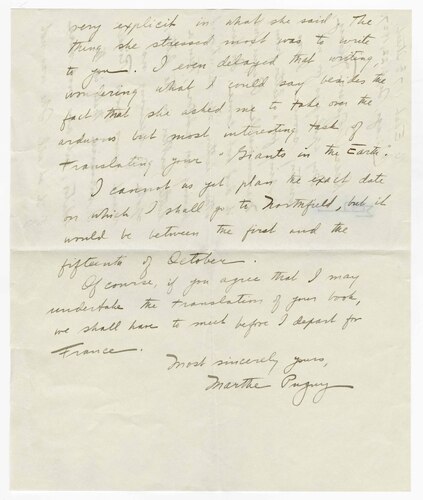 very explicit in what she said. The
thing she stressed most was to write
to you. I even delayed that writing
wondering what I could say besides the
fact that she asked me to take over the
arduous but most interesting task of
translating your "Giants in the Earth".
I cannot as yet plan the exact date
on which I shall go to Northfield, but it
would be between the first and the
fifteenth of October.
Of course, if you agree that I may
undertake the translation of your book,
we shall have to meet before I depart for
France.
Most sincerely yours,
Marthe Puguy